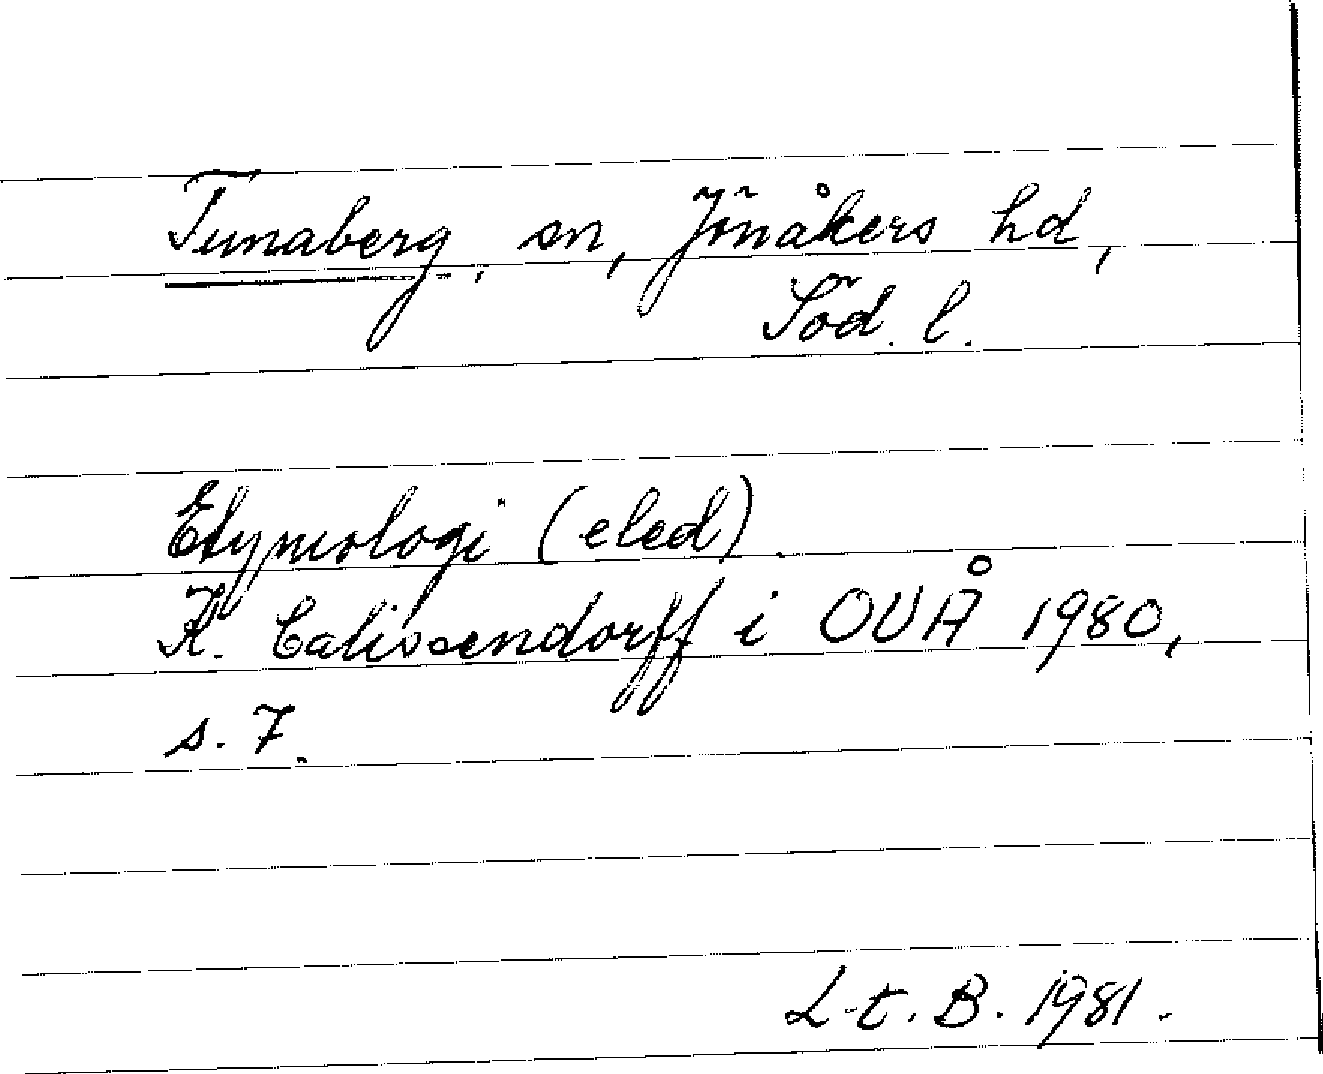 Tunaberg, sn, Jönåkers hd,
Söd. l.
Etymologi (eled).
K. Calissendorff i OUÅ 1980,
s. 7.
L-t. B. 1981.